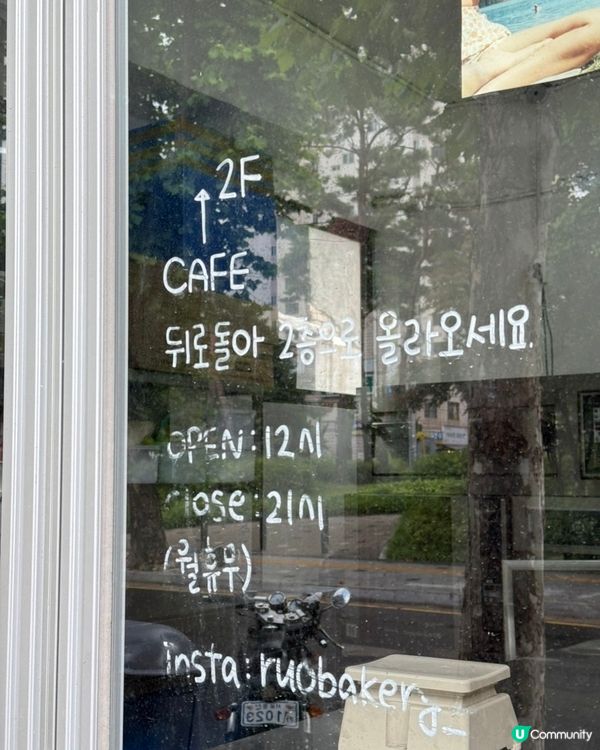 2F
↑
CAFE
뒤로돌아 2층으로 올라오세요.
OPEN:12시
close:21시
(월휴무)
insta:ruobakery_
11023
U Community